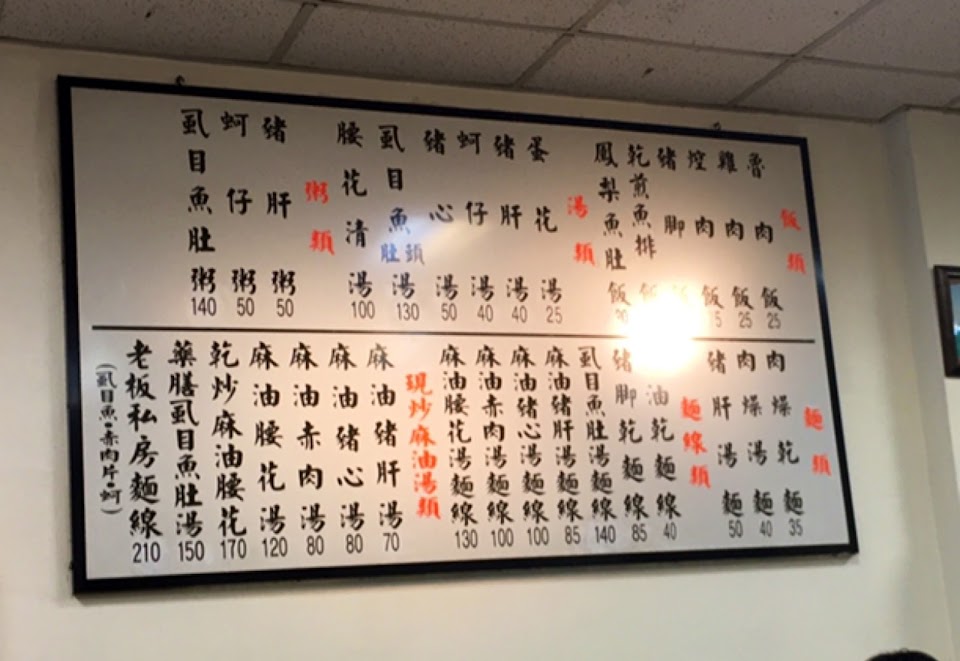 飯類
魯肉飯 25
雞肉飯 25
焢肉飯
豬腳飯
乾煎魚排
鳳梨魚肚飯
湯類
蛋花湯 25
豬肝湯 40
蚵仔湯 40
豬心湯 50
虱目魚肚頭湯 130
腰花清湯 100
粥類
豬肝粥 50
蚵仔粥 50
虱目魚肚粥 140
麵類
肉燥乾麵 35
肉燥湯麵 40
豬肝湯麵 50
麵線類
油乾麵線 40
豬腳乾麵線 85
虱目魚肚湯麵線 140
麻油豬肝湯麵線 85
麻油豬心湯麵線 100
麻油赤肉湯麵線 100
麻油腰花湯麵線 130
現炒麻油湯類
麻油豬肝湯 70
麻油豬心湯 80
麻油赤肉湯 80
麻油腰花湯 120
乾炒麻油腰花 170
藥膳虱目魚肚湯 150
老板私房麵線 210
(虱目魚•赤肉片•蚵)